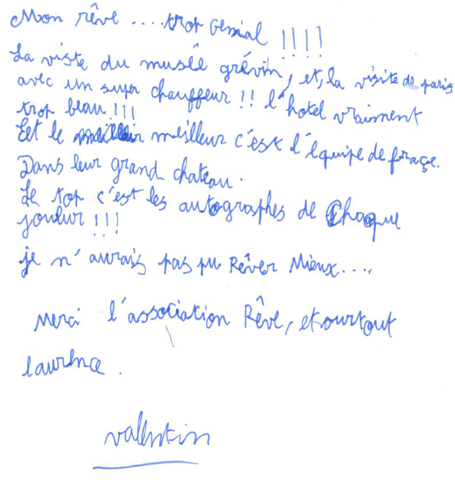 Mon rêve ....trop genial !!!!
La viste du musée grévin, et, la visite de paris
avec un super chauffeur !! l'hotel vraiment
trop beau !!!
Eet le meilleur c'est l'équipe de fraçe.
Dans leur grand chateau.
Le top c'est les autographes de Chaque
joueur !!!
je n'aurais pas pu Rêver Mieux....
Merci l'association Rêve, et surtout
laurence.
valentin